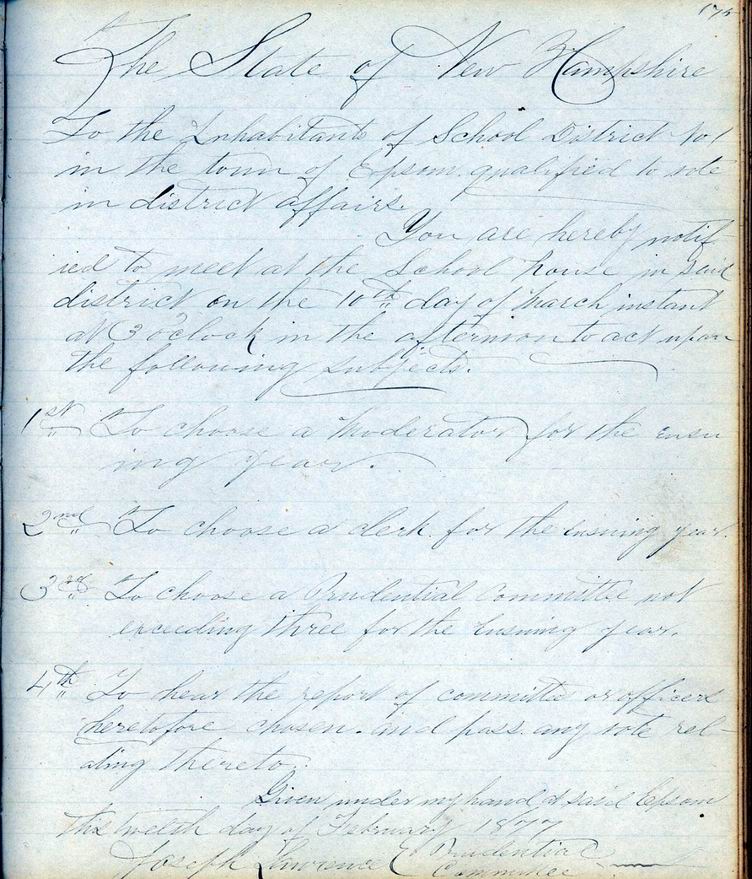 The State of New Hampshire
To the Inhabitants of School District No 1
in the town of Epsom qualified to vote
in district affairs.
You are hereby notif
ied to meet at the School house in said
district on the 10th day of March instant
at 3 oclock in the afternoon to act upon
the following subjects.
1st To choose a moderator for the ensu
ing year.
2nd To choose a clerk for the ensuing year.
3rd To choose a Prudential Committee not
exceeding three for the ensuing year.
4th To hear the report of committee or officers
heretofore chosen. and pass any vote rel-
ating thereto.
Given under my hand & said Epsom
this day of February 1877
Joseph Lawrence Prudential
Committee